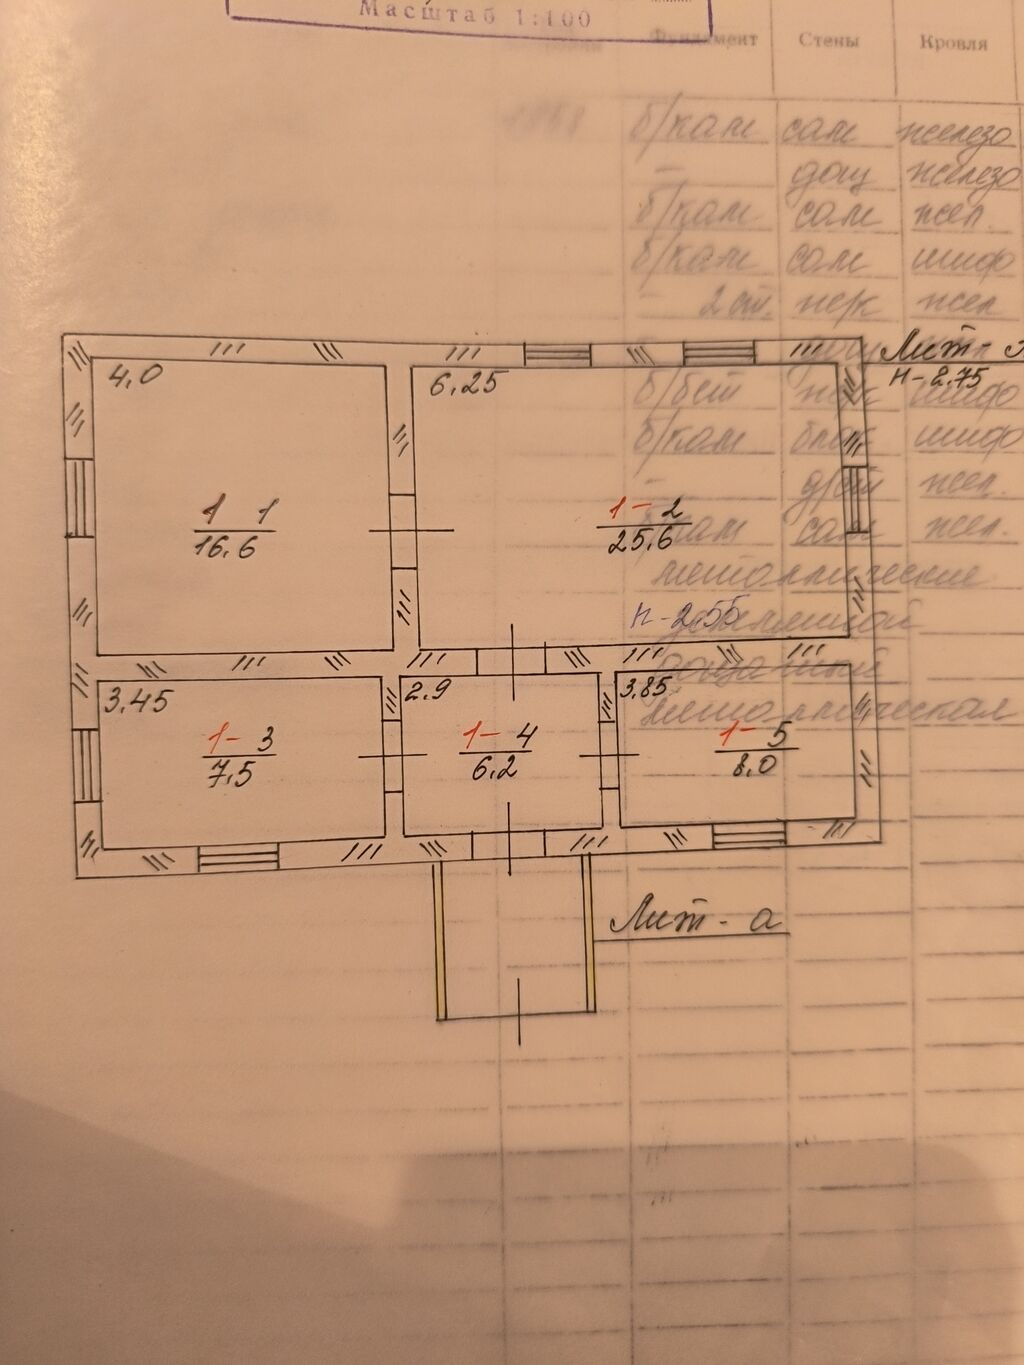 Масштаб 1:100
Фундамент Стены Кровля
б/кам сам железо
- дощ железо
б/кам сам жел.
б/кам сам шиф
- 2 ст. пер жел
Лит-
4,0 6,25 н-2.75
б/бет шиф
б/кам блок шиф
- жел.
1 1 1-2
16,6 25,6
сам жел.
металлические
н-2.55
3,45 2.9 3,85
дощатый
металлическая
1-3 1-4 1-5
7,5 6,2 8,0
Лит-а